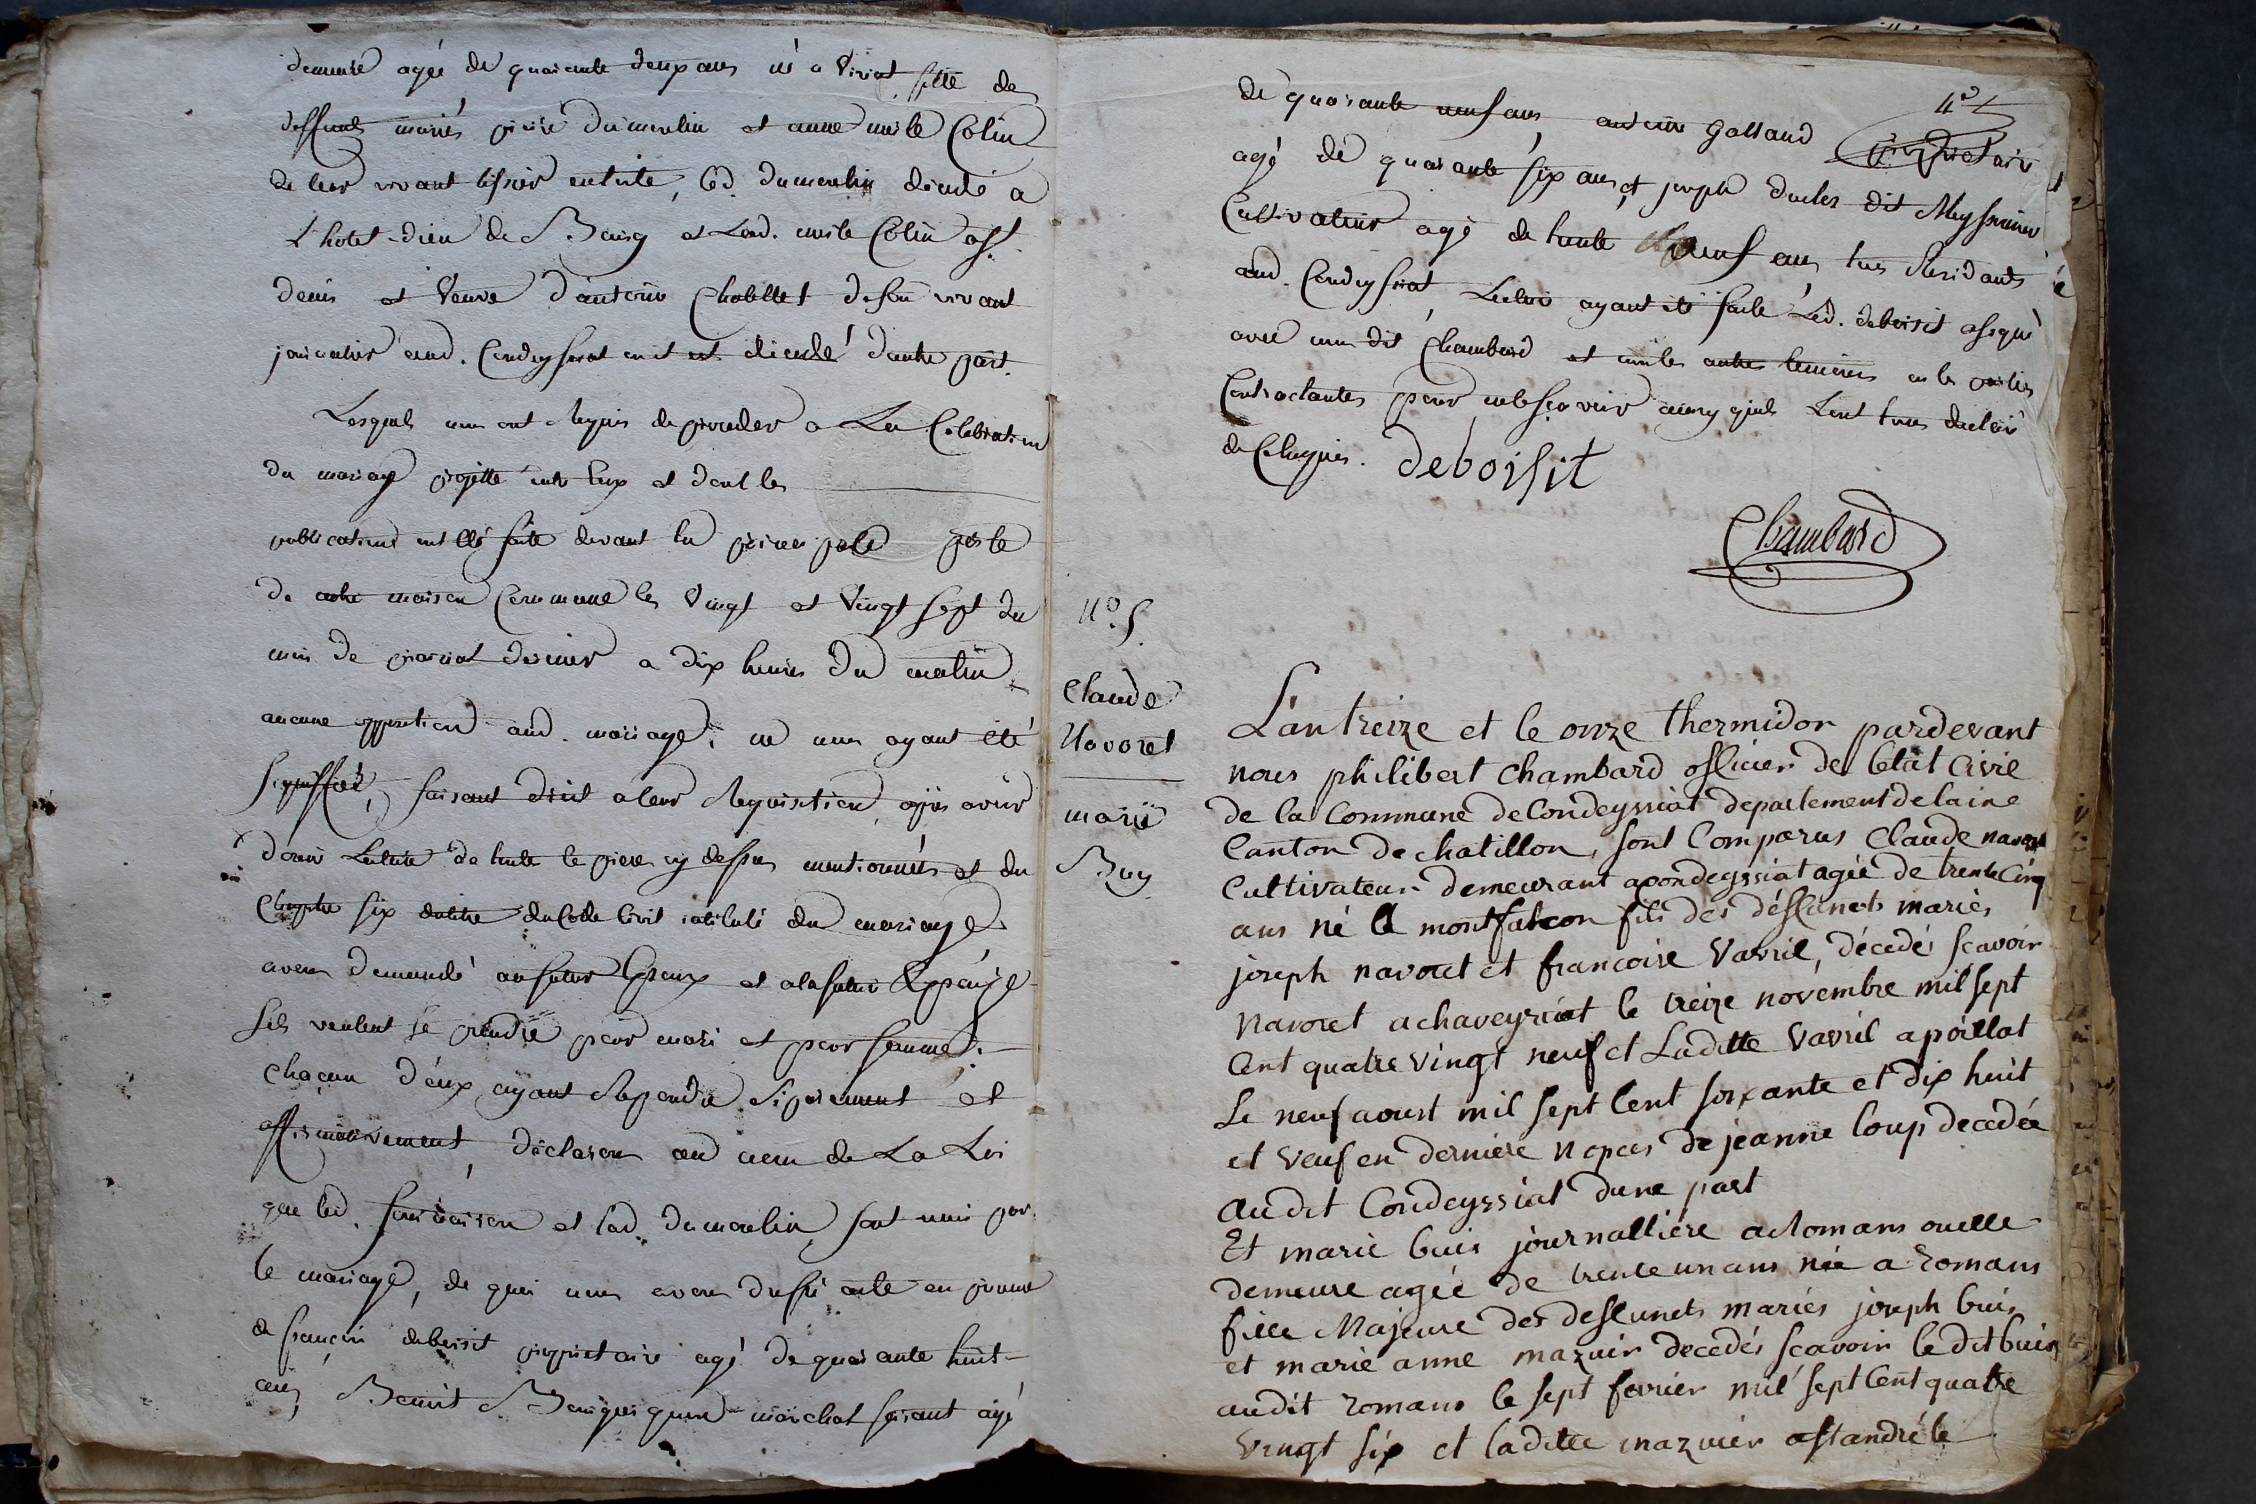 demeure agée de quarante deux ans né a Viriat fille de
deffunts mariés pierre dumoulin et anne Colin
de leur vivant led. dumoulin décédé a
L'hotel-dieu de Bourg et Lad. Colin
et Veuve d'antoine Chollet de son vivant
journalier aud. Condeyssiat ou il est décédé d'autre part.
Lesquels nous ont Requis de proceder a La Celebration
du mariage projetté entre Eux et dont les
publications ont été faite devant la principale porte
de notre maison Commune les Vingt et Vingt sept du
mois de prairial dernier a dix heures du matin
aucune opposition aud. mariage ne nous ayant été
signiffiée, faisant droit a leur Requisition, apres avoir
donné Lecture de toute le piece cy dessus mentionnés et du
Chapitre six dutitre duCode Civil intitulé du mariage
avons demandé aufutur Epoux et alafuture Epouse
Sils veulent se prendre pour mari et pour femme.
Chacun d'eux ayant Repondu Séparement et
affirmativement, déclarons au nom de La Loi
que led. et lad. dumoulin sont unis par
le mariage, de quoi nous avons dressé acte en presence
de françois deboisit proprietaire agé de quarante huit
ans, Benoit marechal ferant agé
de quarante neuf ans antoine Galland proprietaire
4e
agé de quarante six ans et joseph duclos dit Meyssonier
Cultivateur agé de trente neuf ans tous Residants
aud. Condeyssiat Lecture ayant été faite Led. deboisit a signé
avec nous dit Chambard et non les autres temoins ni les parties
Contractantes pour ne le sçavoir ainsy quils Lont tous declaré
de Ce Requis. deboisit
Chambard
No. 5.
Claude
Navoret
marie
Buy
L'an treize et le onze thermidor pardevant
nous philibert chambard officier de letat Civil
de la Commune de Condeyssiat departement de laine
Canton de chatillon, sont Comparus Claude navoret
Cultivateur demeurant a Condeyssiat agée de trente Cinq
ans né a montfalcon fils des défuncts mariés
joseph navoret et francoise Vavril, décedés scavoir
Navoret a chaveyriat le treize novembre mil sept
Cent quatre vingt neuf et Laditte Vavril a poillat
Le neuf aoust mil sept Cent soixante et dix huit
et veuf en derniere nopces de jeanne loup decedée
audit Condeyssiat dune part
Et marie buis journalliere a Romans ou elle
demeure agée de trente un ans née a romans
fille Majeure des defuncts mariés joseph buis
et marie anne mazuir decedés scavoir le dit buis
audit romans le sept fevrier mil sept Cent quatre
vingt six et laditte mazuier a st andré le